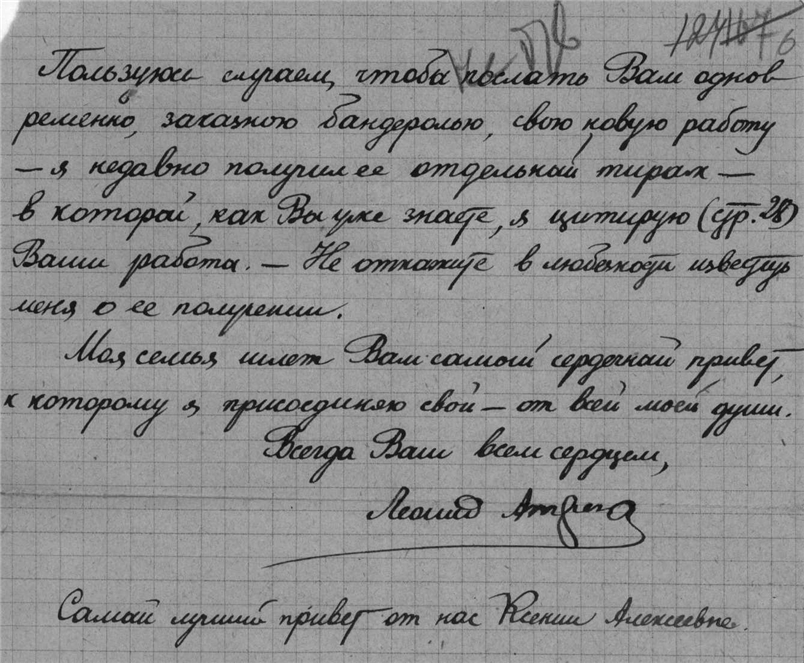 Пользуюсь случаем, чтобы послать Вам однов
ременно, заказною бандеролью, свою новую работу
— я недавно получил ее отдельный тираж —
в которой, как Вы уже знаете, я цитирую (стр. 28)
Ваши работы. — Не откажите в любезности известить
меня о ее получении.
Моя семья шлет Вам самый сердечный привет,
к которому я присоединяю свой — от всей моей души.
Всегда Ваш всем сердцем,
Леонид
Самый лучший привет от нас Ксении Алексеевне.